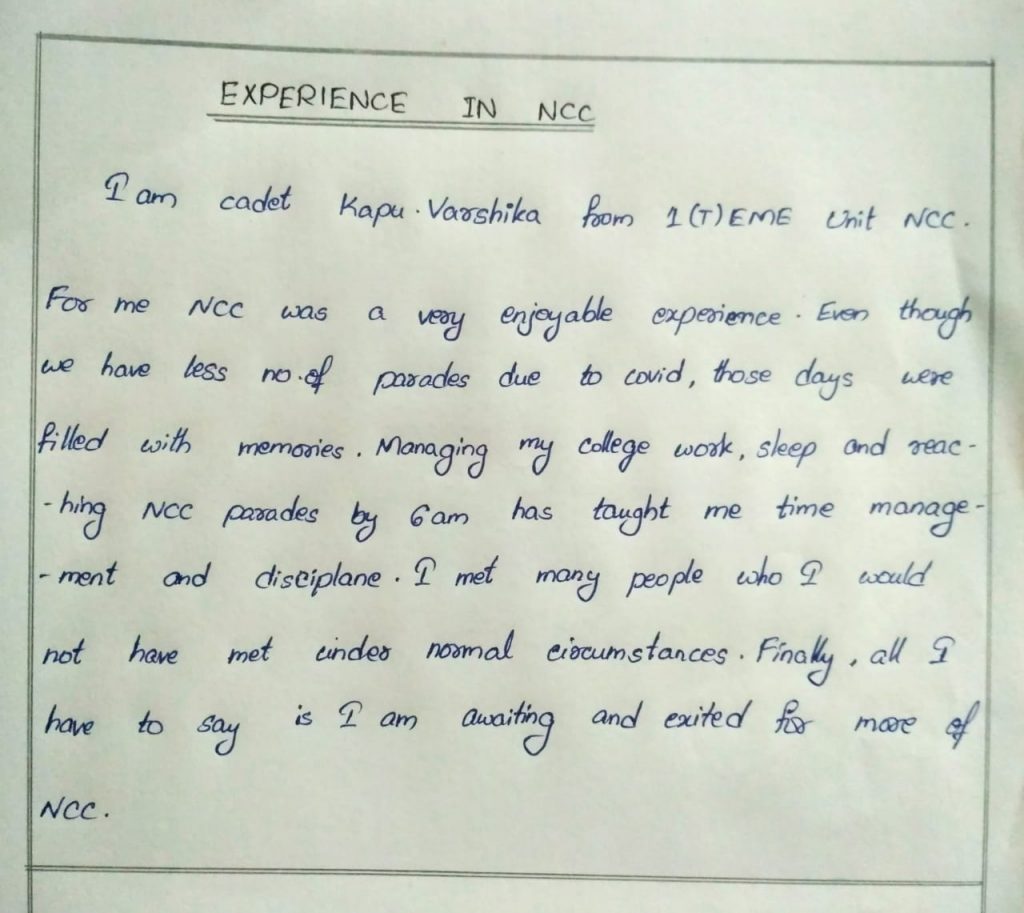 EXPERIENCE IN NCC
I am cadet Kapu. Varshika from 1(T) EME Unit NCC.
For me NCC was a very enjoyable experience. Even though
we have less no. of parades due to covid, those days were
filled with memories. Managing my college work, sleep and reac-
-hing NCC parades by 6am has taught me time manage-
-ment and disciplane. I met many people who I would
not have met under normal circumstances. Finally, all I
have to say is I am awaiting and exited for more of
NCC.